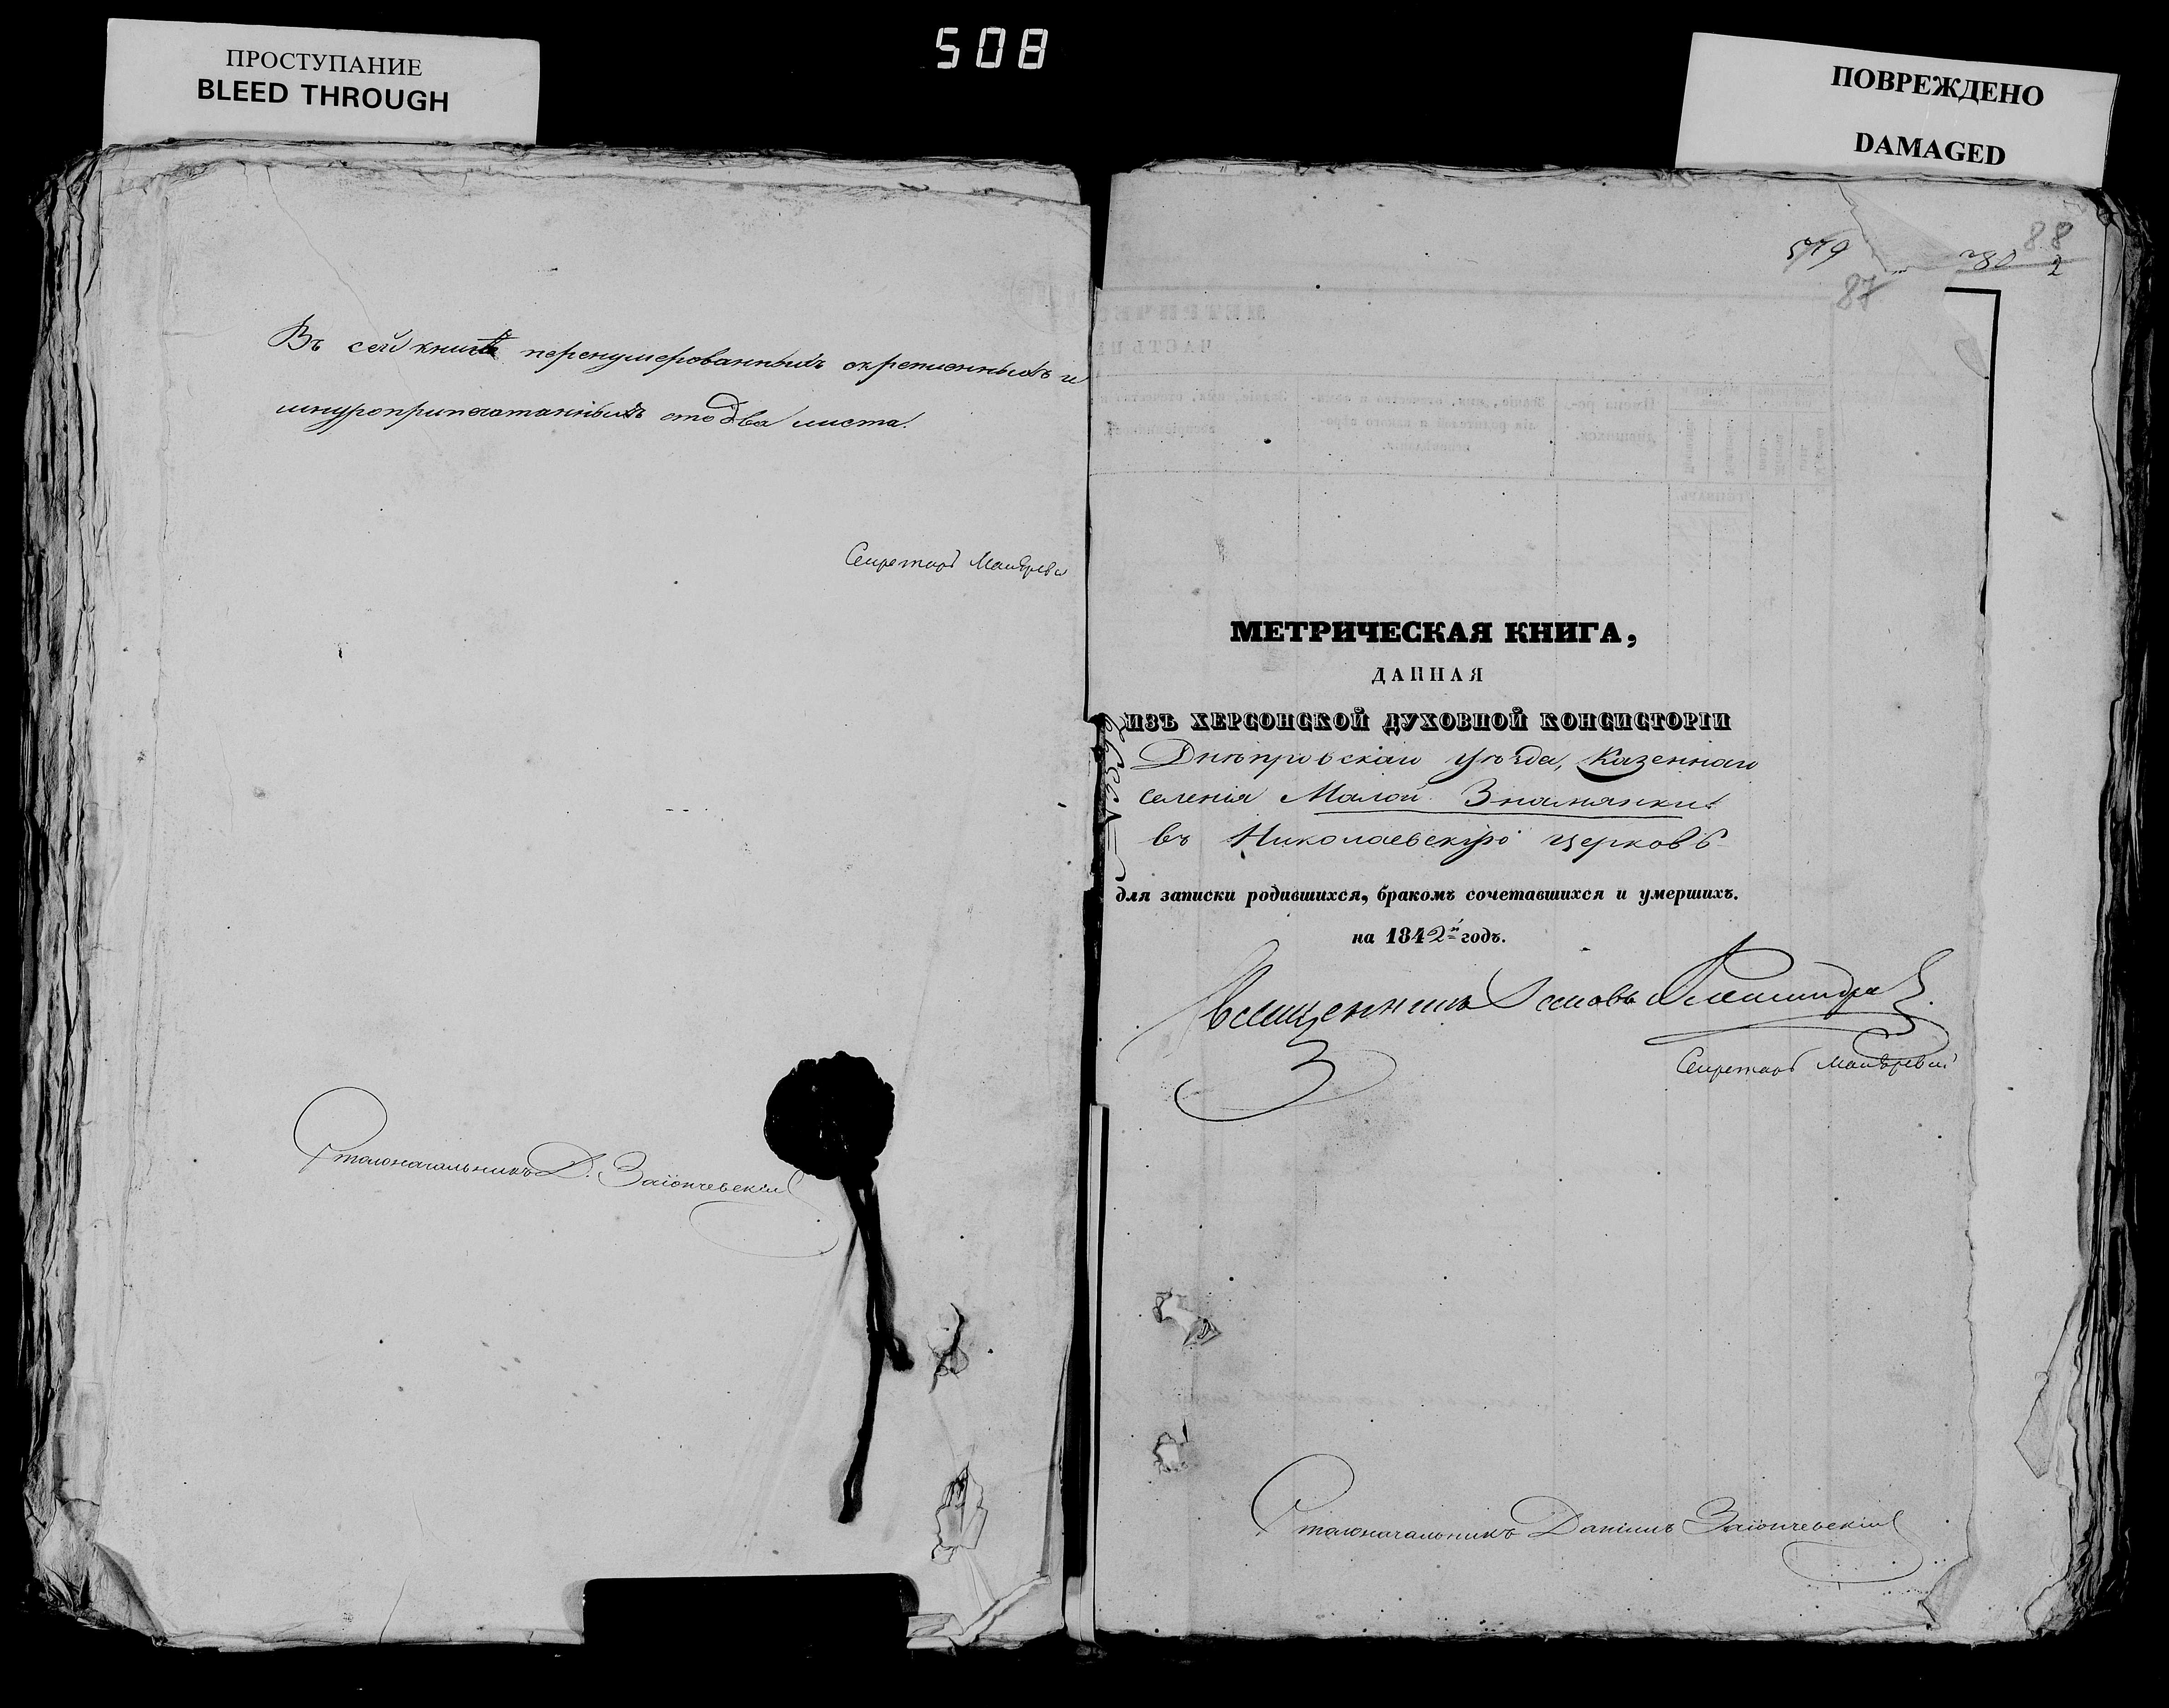 ПРОСТУПАНИЕ
BLEED THROUGH
508
ПОВРЕЖДЕНО
DAMAGED
Въ сей книгѣ перенумерованныхъ скрепленныхъ и
шнуроприпечатанныхъ сто два листа.
Секретарь
Столоначальникъ Д. Заіончевскій
579
780
88
2
87
МЕТРИЧЕСКАЯ КНИГА,
ДАННАЯ
ИЗЪ ХЕРСОНСКОЙ ДУХОВНОЙ КОНСИСТОРІИ
Днѣпровскаго уѣзда, Казеннаго
селенія Малой Знамянки
въ Николаевскую церковь
для записки родившихся, бракомъ сочетавшихся и умершихъ.
на 1842й годъ.
Священникъ Іаковъ
Секретарь
Столоначальникъ Даніилъ Заіончевскій